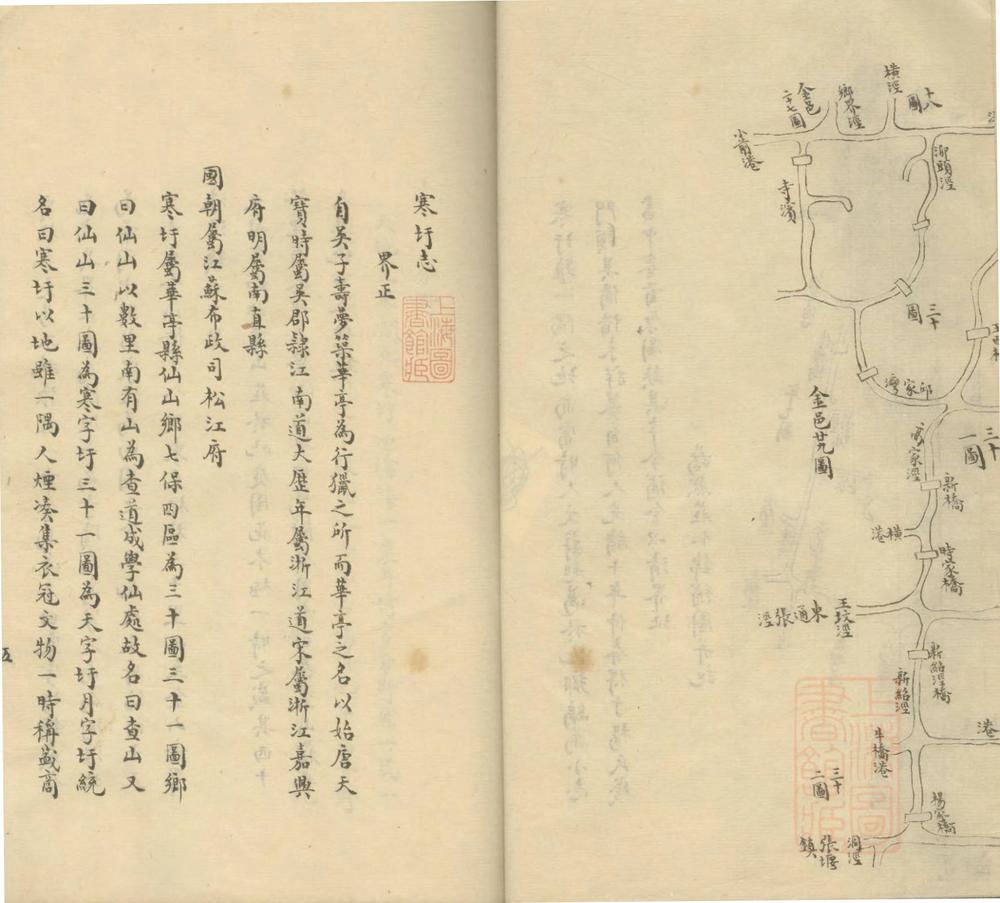 橫涇
十八圖
鄉界涇
金邑二十七圖
小𫝊港
泖頭涇
寺濱
三十圖
邱家灣
金邑廿九圖
三十一圖
家涇
新橋
橫港
時家橋
王坟涇
東通張涇
新絽涇橋
新絽涇
港
牛橋港
三十二圖
楊家橋
洞涇
張堰鎮
上海圖書館藏
寒圩志
界正
自吳子壽夢築華亭為行獵之所而華亭之名以始唐天
寶時屬吳郡隸江南道大歷年屬浙江道宋屬浙江嘉興
府明屬南直縣
國朝屬江蘇布政司松江府
寒圩屬華亭縣仙山鄉七保四區為三十圖三十一圖鄉
曰仙山以數里南有山為查道成學仙處故名曰查山又
曰仙山三十圖為寒字圩三十一圖為天字圩月字圩統
名曰寒圩以地雖一隅人煙凑集衣冠文物一時稱盛商
五
上海圖書館藏